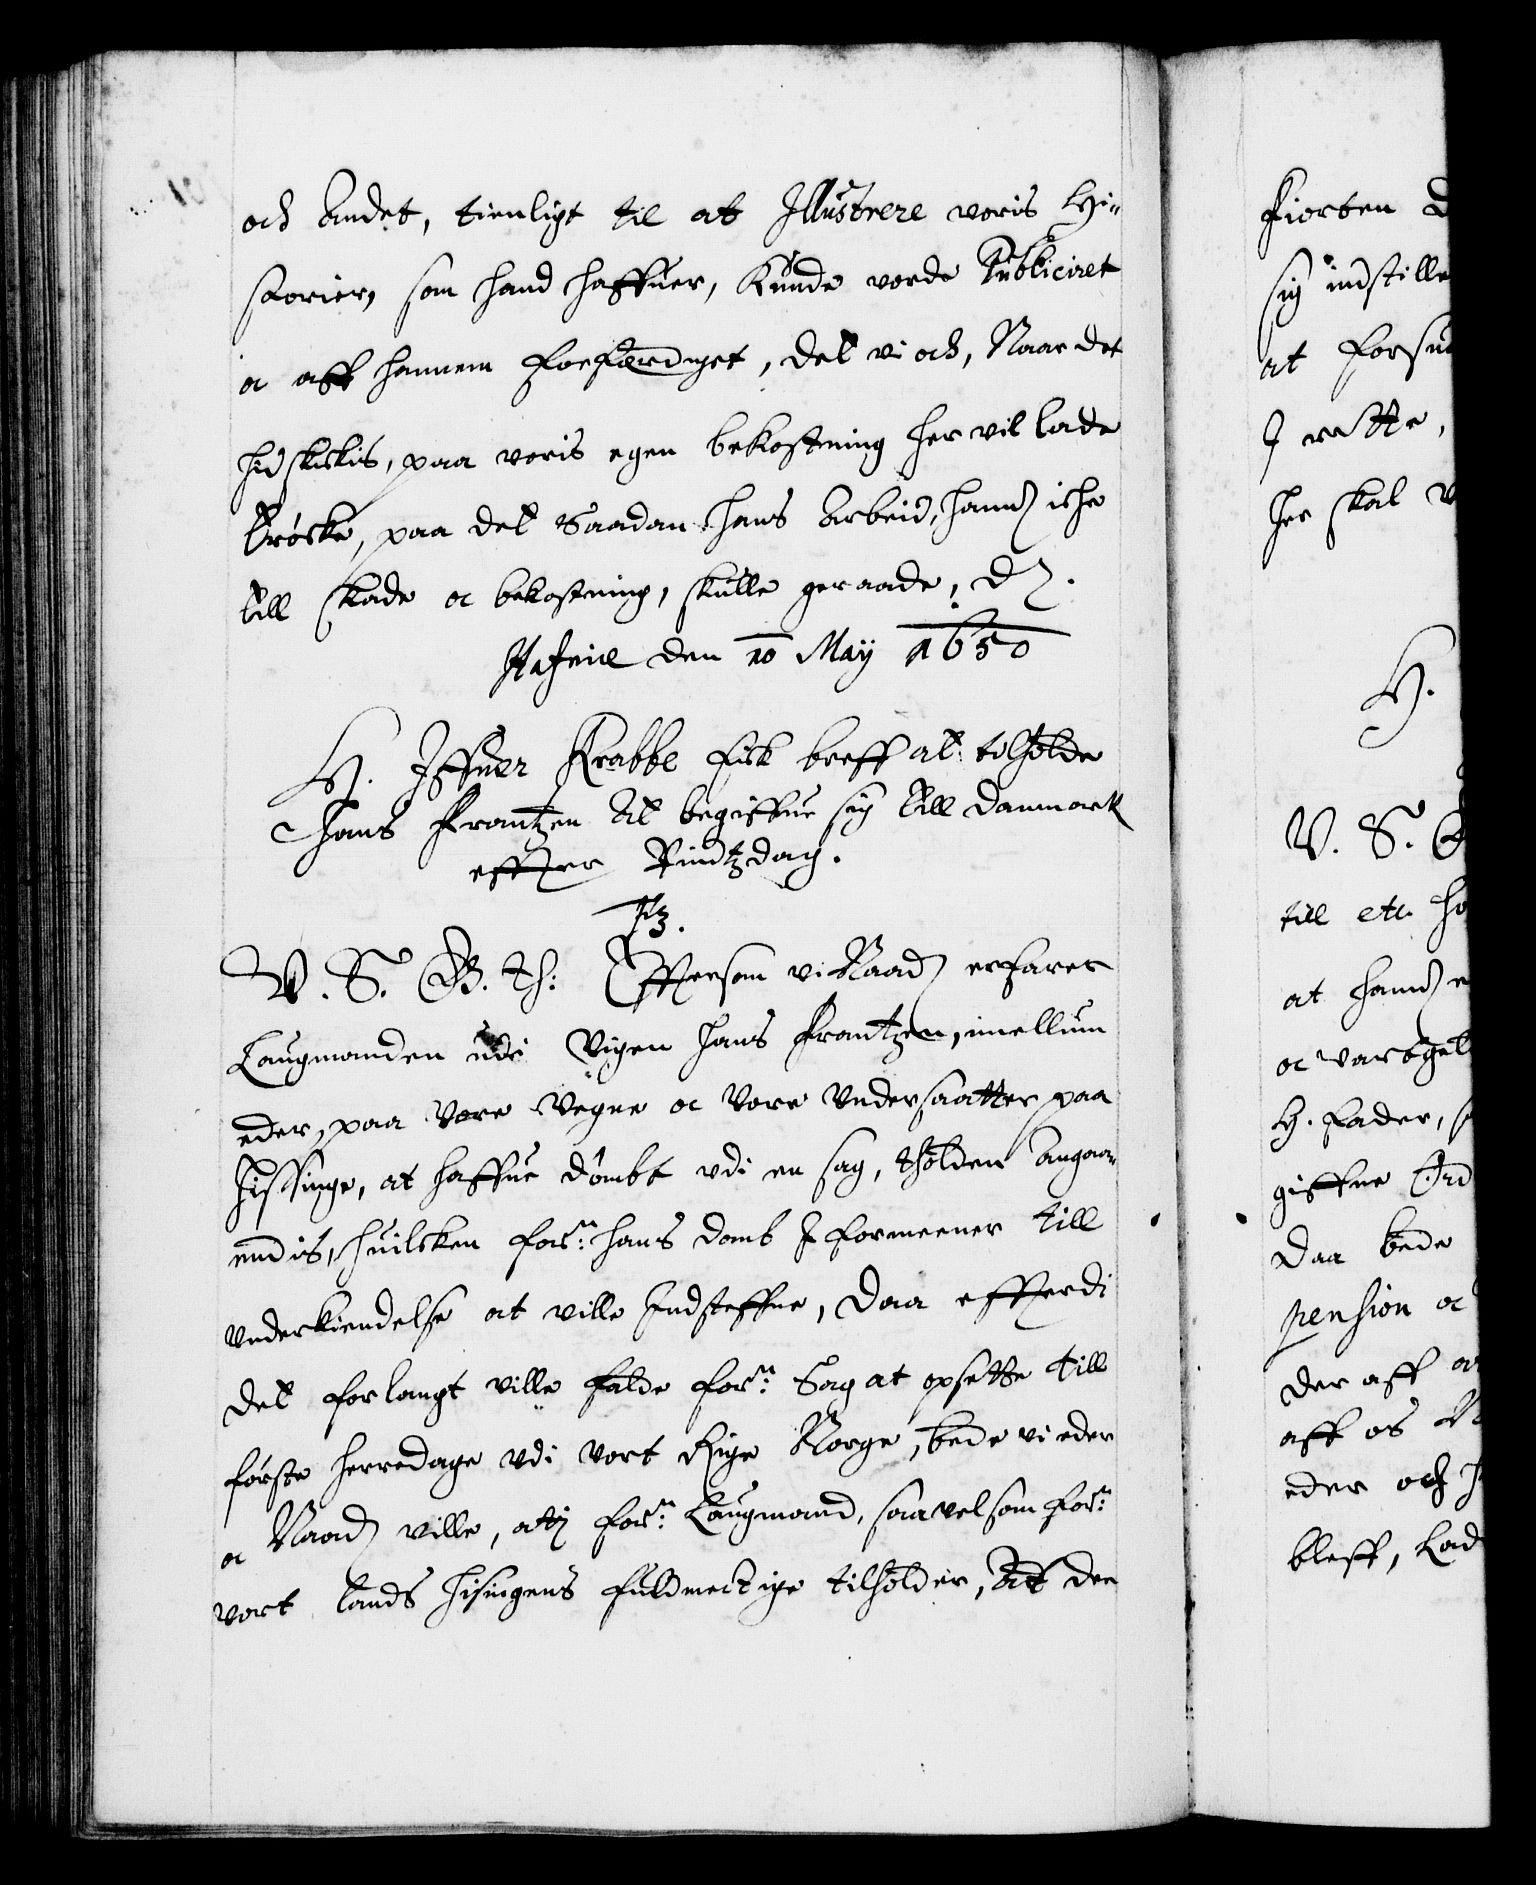 och Andet, tienligt til at Illustrere voris Hi-
storier, som hand haffuer, Kunde vorde Publiciret
oc aff hannem forferdiget, det vi och, Naar det
hidskickis, paa voris egen bekostning her vil lade
trycke, paa det Saadan hans Arbeid, hannem iche
till skade oc bekostning, skulle geraade,
Hafniæ den 10 May 1650
H. Iffuer Krabbe fick breff at tilholde
Hans Frantzen At begiffue sig till Danmark
effter Pindtzdag.
F3.
V. S. G. Th: Eftersom vi Naadigst erfarer
Laugmanden udi Vigen Hans Frantzen, imellum
eder, paa Vore Vegne oc Vore Vndersaatter paa
Hissinge, at haffue dömbt vdi en sag, tholden angaa-
endis, huilcken forne: hans domb I formeener till
Vnderkiendelse at ville Indsteffne, Daa efterdi
det forlangt ville falde forne: Sag at opsette till
förste herredage vdi vort Rige Norge, bede vi eder
oc Naadigst ville, at i forne: Laugmand, saavelsom forne:
vort Lands Hisingens fuldmectige tilholder, At de
Fiorten
sig indstille
at forsu
I rette,
her skal
H.
V. S. G
till etc. ho
at hannem
oc
H. Fader,
giffne Ord
Daa bede
pension oc
der aff
aff os
eder och
bleff, Lad